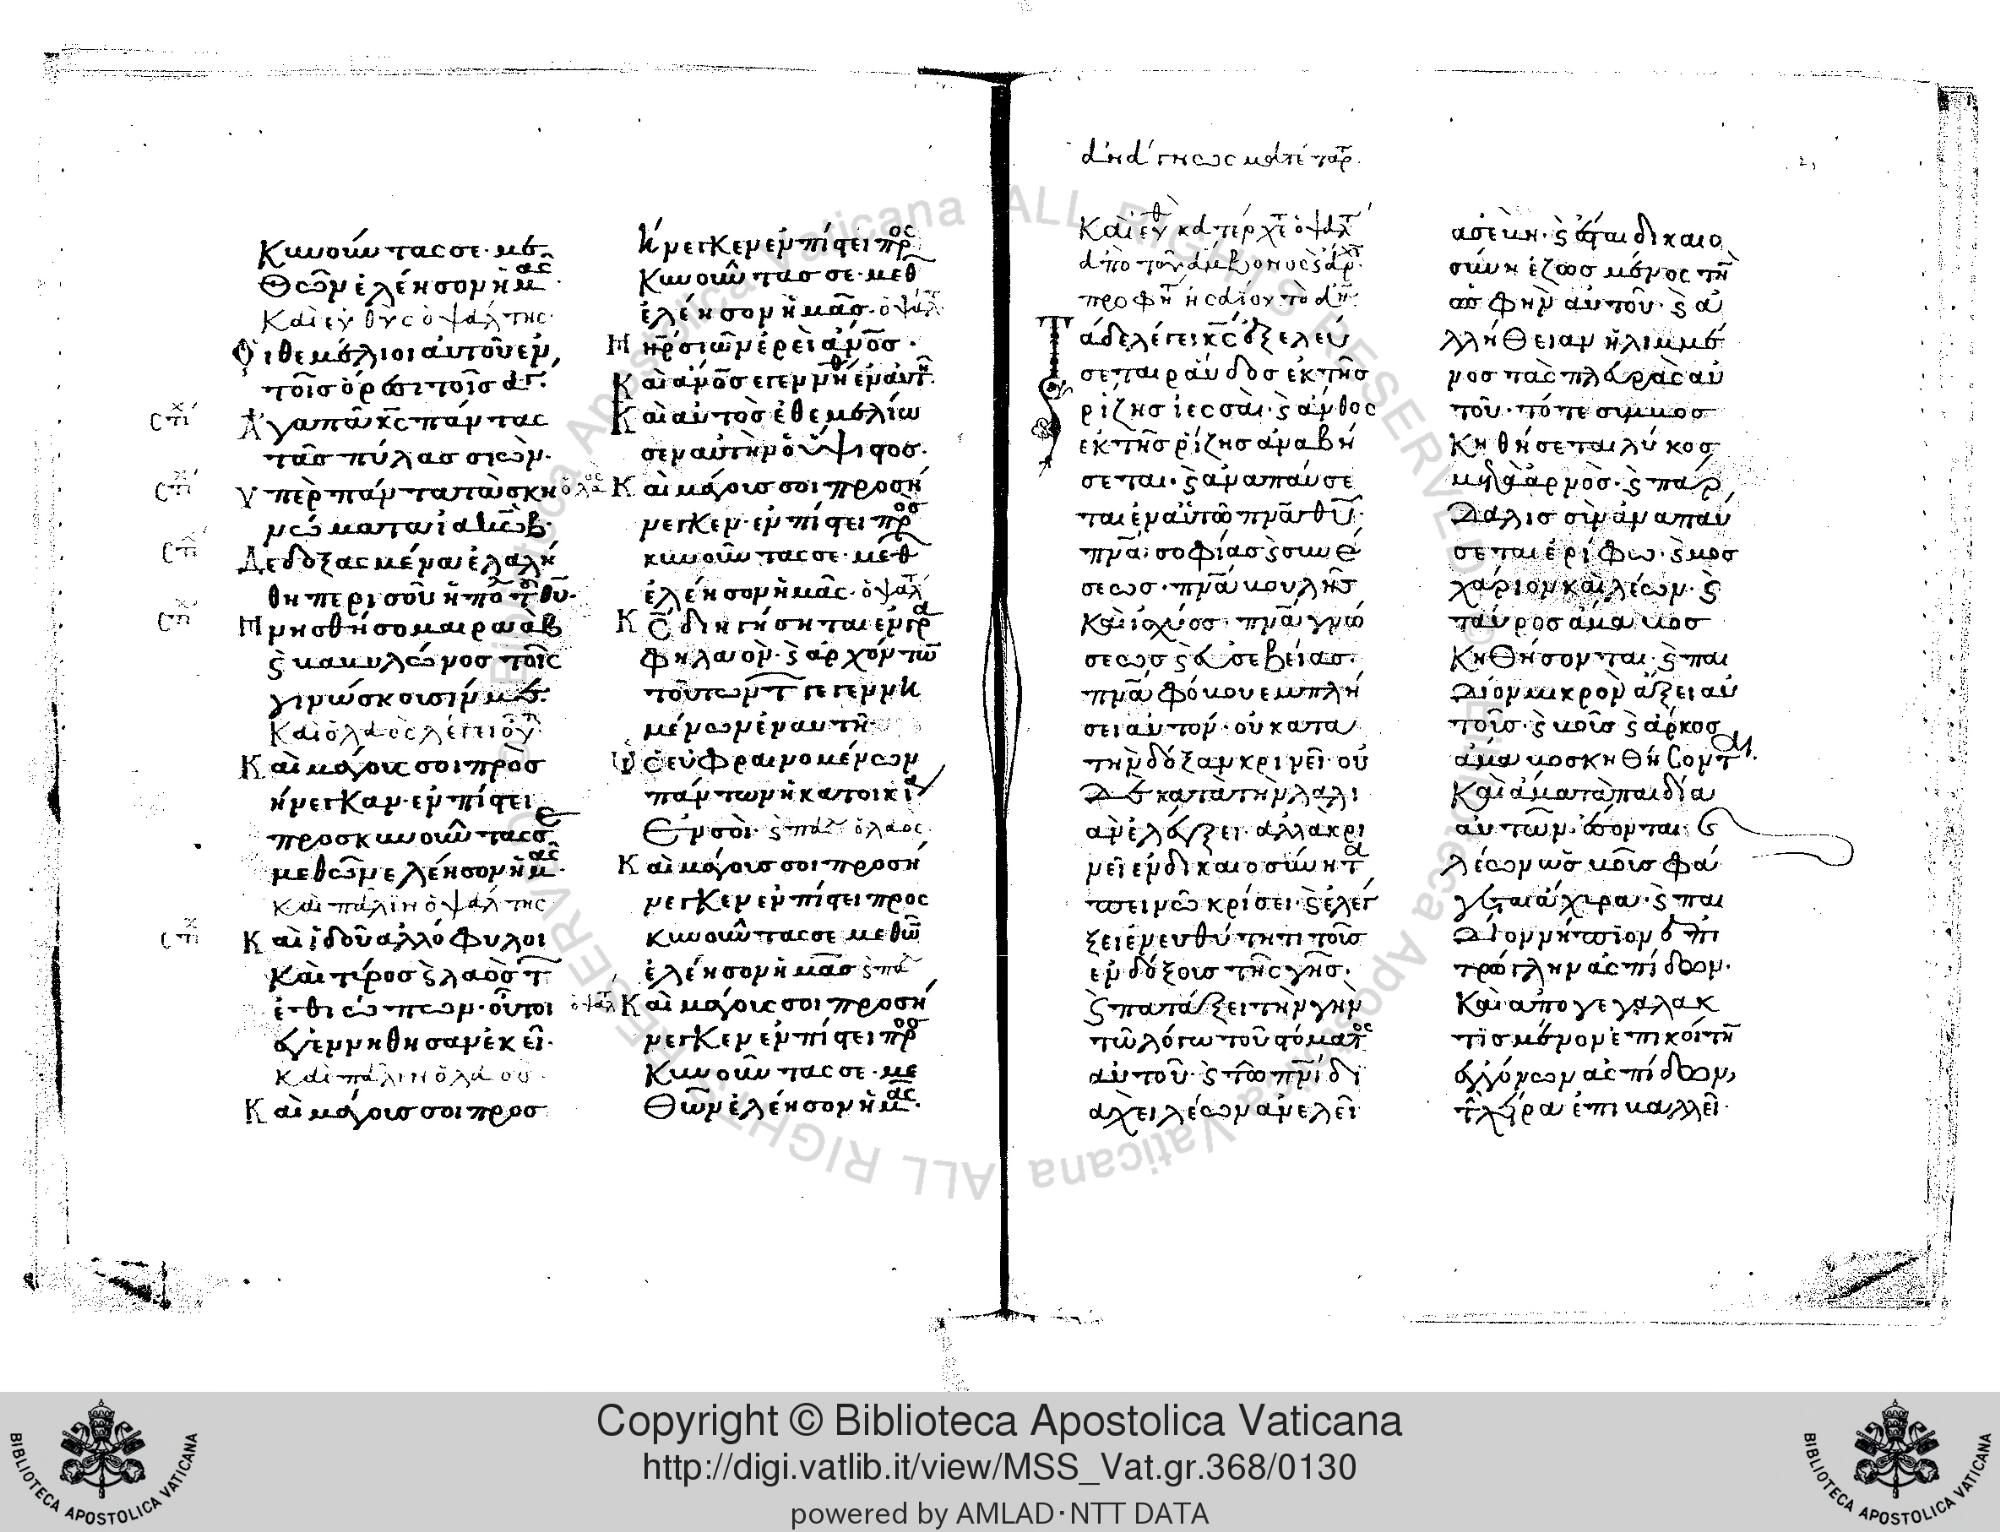 κυνούντας σε· με
θ' ὧν ἐλέησον ἡμᾶς
Καὶ εὐθὺς ὁ ψάλτης
Οἱ θεμέλιοι αὐτοῦ ἐν
τοῖς ὄρεσι τοῖς ἁγί
Ἀγαπᾷ κς πάντας
τὰς πύλας σιὼν·
ὑπὲρ πάντα τὰ σκη
νώματα ἰακώβ·
Δεδοξασμένα ἐλαλή
θη περὶ σοῦ ἡ πό τ θυ·
Μνησθήσομαι ραὰβ
ϗ βαβυλῶνος τοῖς
γινώσκουσίν με·
Καὶ ὁ λαὸς λέγει
Καὶ μάγους σοι προσ
ήνεγκαν· ἐν πίστει
προσκυνοῦντας σε
μεθ' ὧν ἐλέησον ἡμᾶς·
Καὶ πάλιν ὁ ψάλτης
Καὶ ἰδοῦ ἀλλόφυλοι
καὶ τύρος ϗ λαὸς τ
ἐθιώπων· οὗτοι
ἐγεννήθησαν ἐκεῖ·
Καὶ πάλιν ὁ λαὸς
Καὶ μάγους σοι προσ
ήνεγκεν ἐν πίστει προσ
κυνοῦντας σε· μεθ
ἐλέησον ἡμᾶς· ὁ ψάλτ
Μηρ σιὼν ἐρεὶ ἄνος·
Καὶ ἄνος ἐγεννήθη ἐν αὐτῆ
Καὶ αὐτὸς ἐθεμελίω
σεν αὐτὴν ὁ ὕψιστος·
ὁ λαὸς Καὶ μάγους σοι προσή
νεγκεν· ἐν πίστει προσ
κυνοῦντας σε· μεθ
ἐλέησον ἡμᾶς· ὁ ψάλτ
Κς διηγήσηται ἐν γρα
φῆ λαῶν· ϗ ἀρχόντων
τούτων τ γεγεννη
μένων ἐν αὐτῆ
Ὡς εὐφραινομένων
πάντων ἡ κατοικία
Ἐν σοὶ· ϗ πάλ ὁ λαός
Καὶ μάγους σοι προσή
νεγκεν ἐν πίστει προσ
κυνοῦντας σε μεθ ὧν
ἐλέησον ἡμᾶς ϗ πάλ
ὁ ψάλ Καὶ μάγους σοι προσή
νεγκεν ἐν πίστει προσ
κυνοῦντας σε· με
θ' ὧν ἐλέησον ἡμᾶς·
Καὶ εὐθ κατέρχετ ὁ ψάλτ
ἀπὸ τοῦ ἄμβονος ϗ
προφήτ ἠσαΐου τὸ ἀν
Τάδε λέγει κς ἐξελεύ
σεται ράβδος ἐκ τῆς
ρίζης ἰεσσαὶ· ϗ ἄνθος
ἐκ τῆς ρίζης ἀναβή
σεται· ϗ ἀναπαύσε
ται ἐν αὐτῶ πνα θυ·
πνα σοφίας ϗ συνέ
σεως· πνα βουλῆς
καὶ ἰσχύος· πνα γνώ
σεως ϗ εὐσεβείας·
πνα φόβου ἐμπλή
σει αὐτον· οὐ κατα
τὴν δόξαν κρινεῖ· οὐ
δὲ κατὰ τὴν λαλι
ὰν ἐλέγξει· ἀλλὰ κρι
νεῖ ἐν δικαιοσύνη τα
πεινῶ κρίσει· ϗ ἐλέγ
ξει ἐν εὐθύτητι τοὺς
ἐνδόξους τῆς γῆς·
ϗ πατάξει τὴν γῆν
τῶ λόγω τοῦ στόματος
αὐτοῦ· ϗ τῶ πνι δι
ὰ χειλέων ἀνελεῖ
ἀσεβῆ· ϗ ἔσται δικαιο
σύνη ἐζωσμένος τὴν
ὀσφὴν αὐτοῦ· ϗ ἀ
ληθεία ἠλιμμέ
νος τὰς πλευρὰς αὐ
τοῦ· τότε συμβοσ
κηθήσεται λύκος
μετὰ ἀρνὸς· ϗ πάρ
δαλις συναναπαύ
σεται ἐρίφω· ϗ μοσ
χάριον καὶ λέων· ϗ
ταύρος ἅμα βοσ
κηθήσονται· ϗ παι
δίον μικρὸν ἄξει αὐ
τοὺς· ϗ βοῦς ϗ ἄρκος
ἅμα βοσκηθήσονται·
Καὶ ἅμα τὰ παιδία
αὐτῶν· ἔσονται·
λέων ὡς βοῦς φά
γεται ἄχυρα· ϗ παι
δίον νήπιον ἐπὶ
τρώγλην ἀσπίδων·
Καὶ ἀπογεγαλακ
τισμένον ἐπὶ κοίτην
ἐγγόνων ἀσπίδων,
τ χεῖρα ἐπιβαλλεῖ·
Copyright © Biblioteca Apostolica Vaticana
http://digi.vatlib.it/view/MSS_Vat.gr.368/0130
powered by AMLAD·NTT DATA
BIBLIOTECA APOSTOLICA VATICANA
BIBLIOTECA APOSTOLICA VATICANA